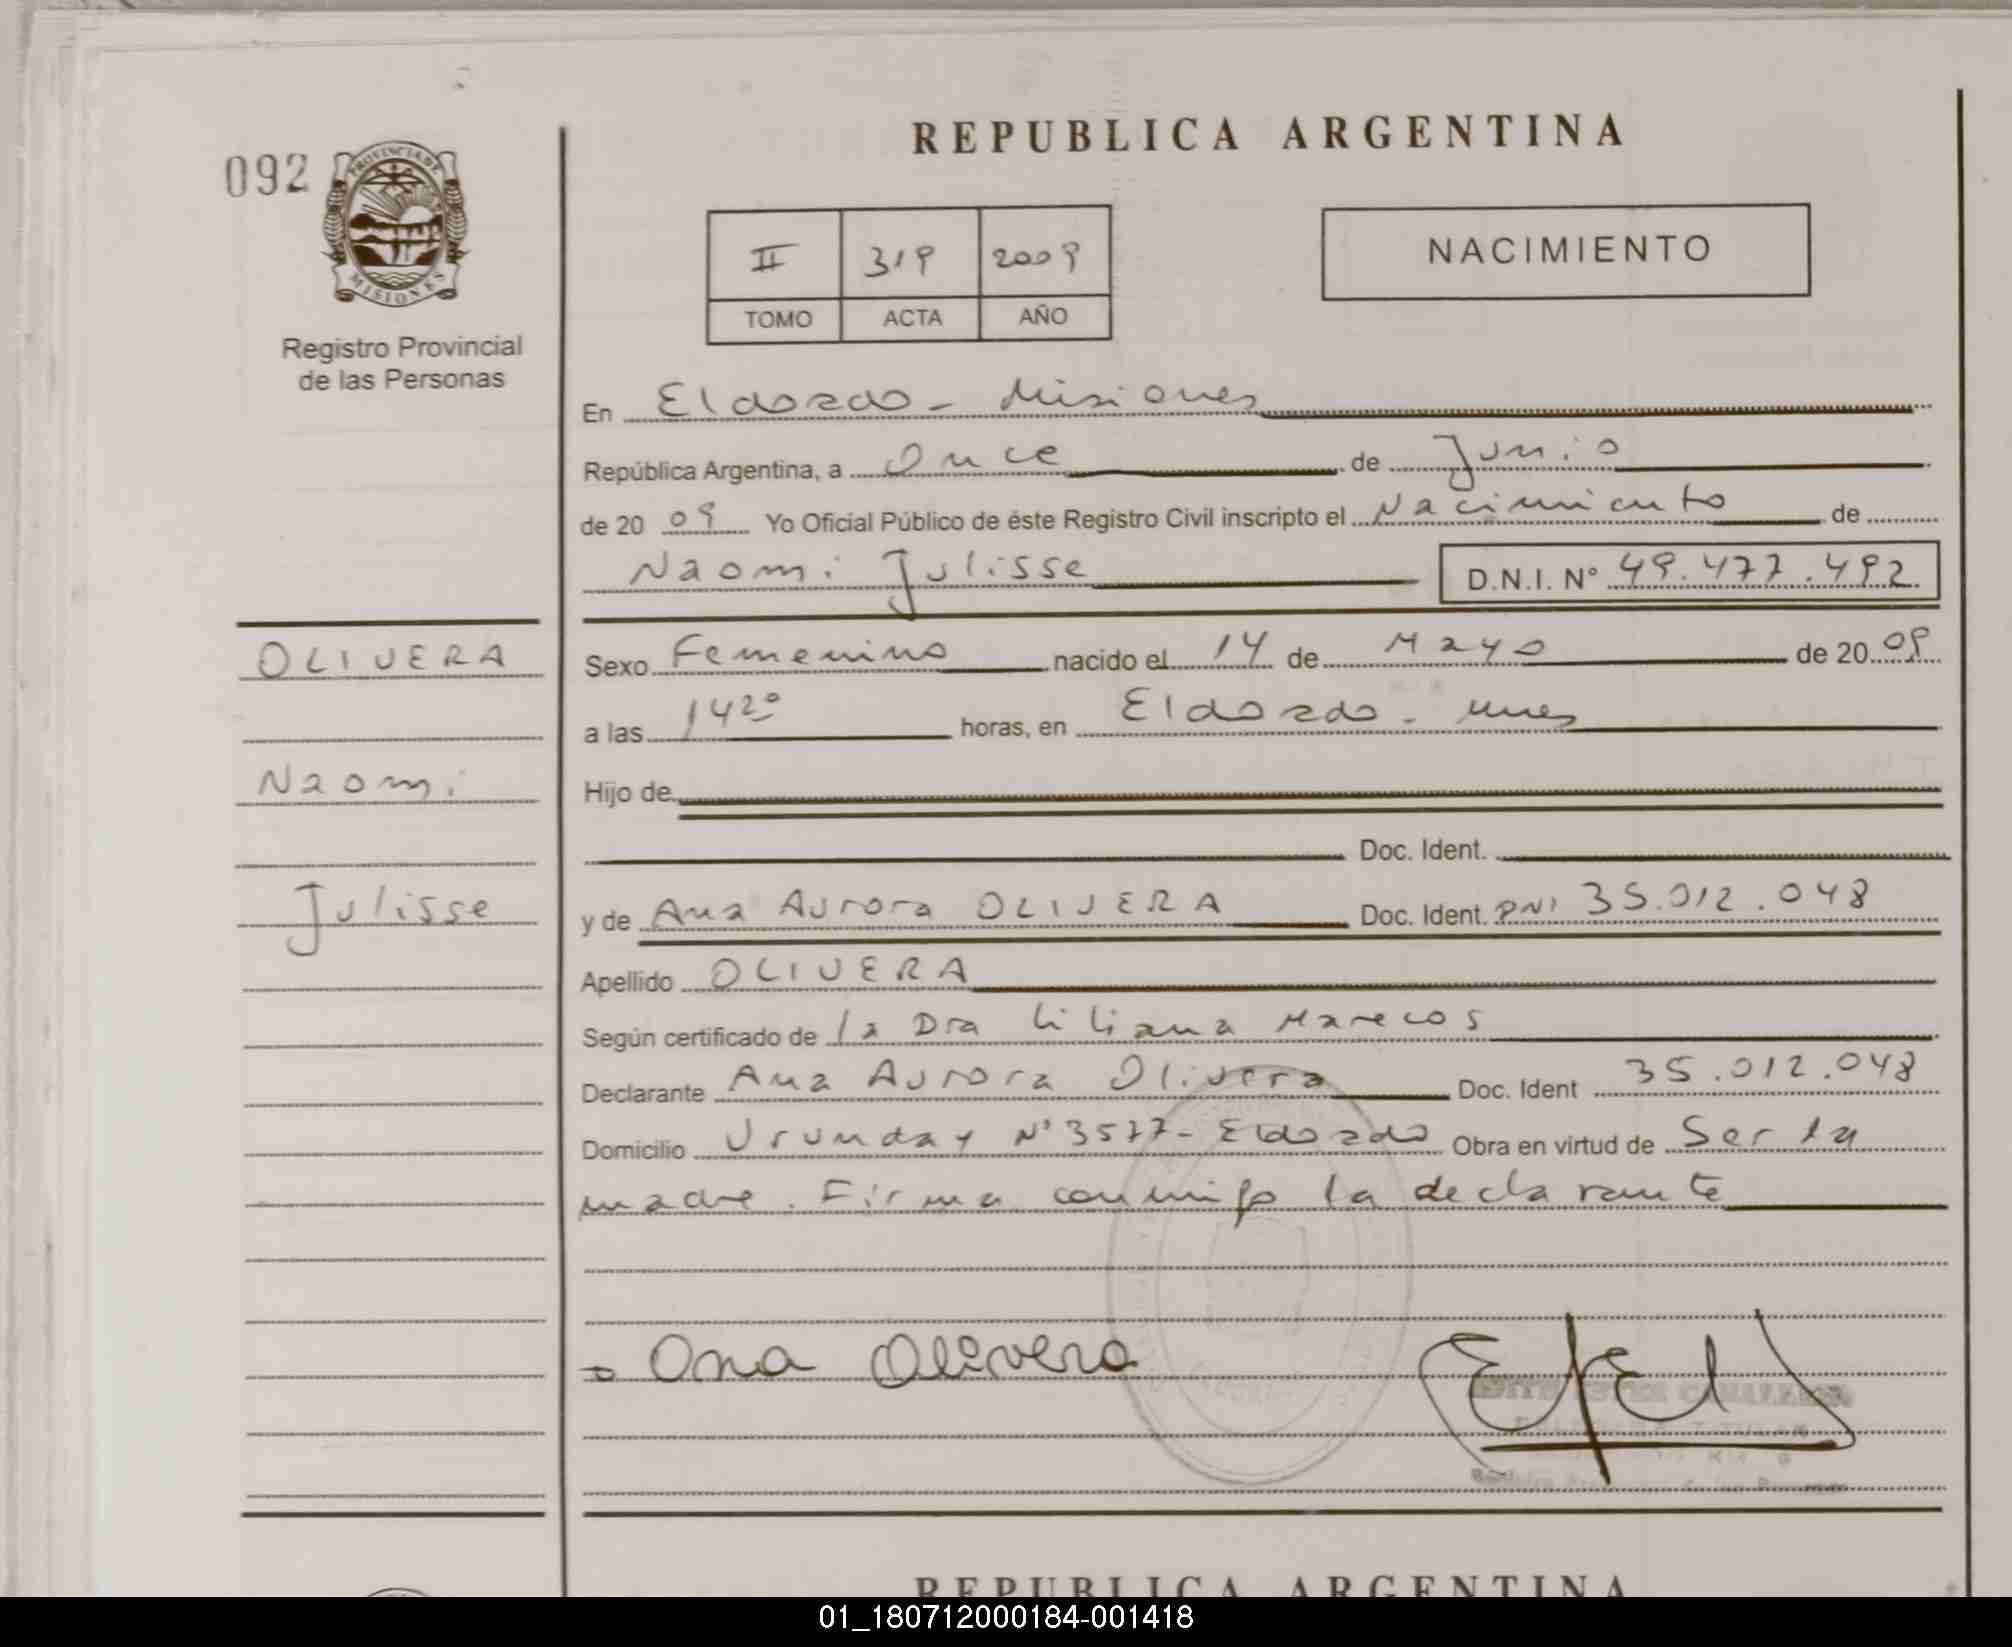 REPUBLICA ARGENTINA
092
PROVINCIA DE
MISIONES
Registro Provincial
de las Personas
II 319 2009
TOMO ACTA AÑO
NACIMIENTO
En Eldorado - Misiones
República Argentina, a Once de Junio
de 20 09 Yo Oficial Público de éste Registro Civil inscripto el Nacimiento de
Naomi Julisse D.N.I. Nº 49.477.492
OLIVERA
Naomi
Julisse
Sexo Femenino nacido el 14 de Mayo de 20 09
a las 14 20 horas, en Eldorado - Mnes
Hijo de
Doc. Ident.
y de Ana Aurora OLIVERA Doc. Ident. DNI 35.012.048
Apellido OLIVERA
Según certificado de la Dra Liliana Marecos
Declarante Ana Aurora Olivera Doc. Ident 35.012.048
Domicilio Urunday Nº 3577 - Eldorado Obra en virtud de Ser la
madre. Firma conmigo la declarante
Ana Olivera
REPUBLICA ARGENTINA
01_180712000184-001418